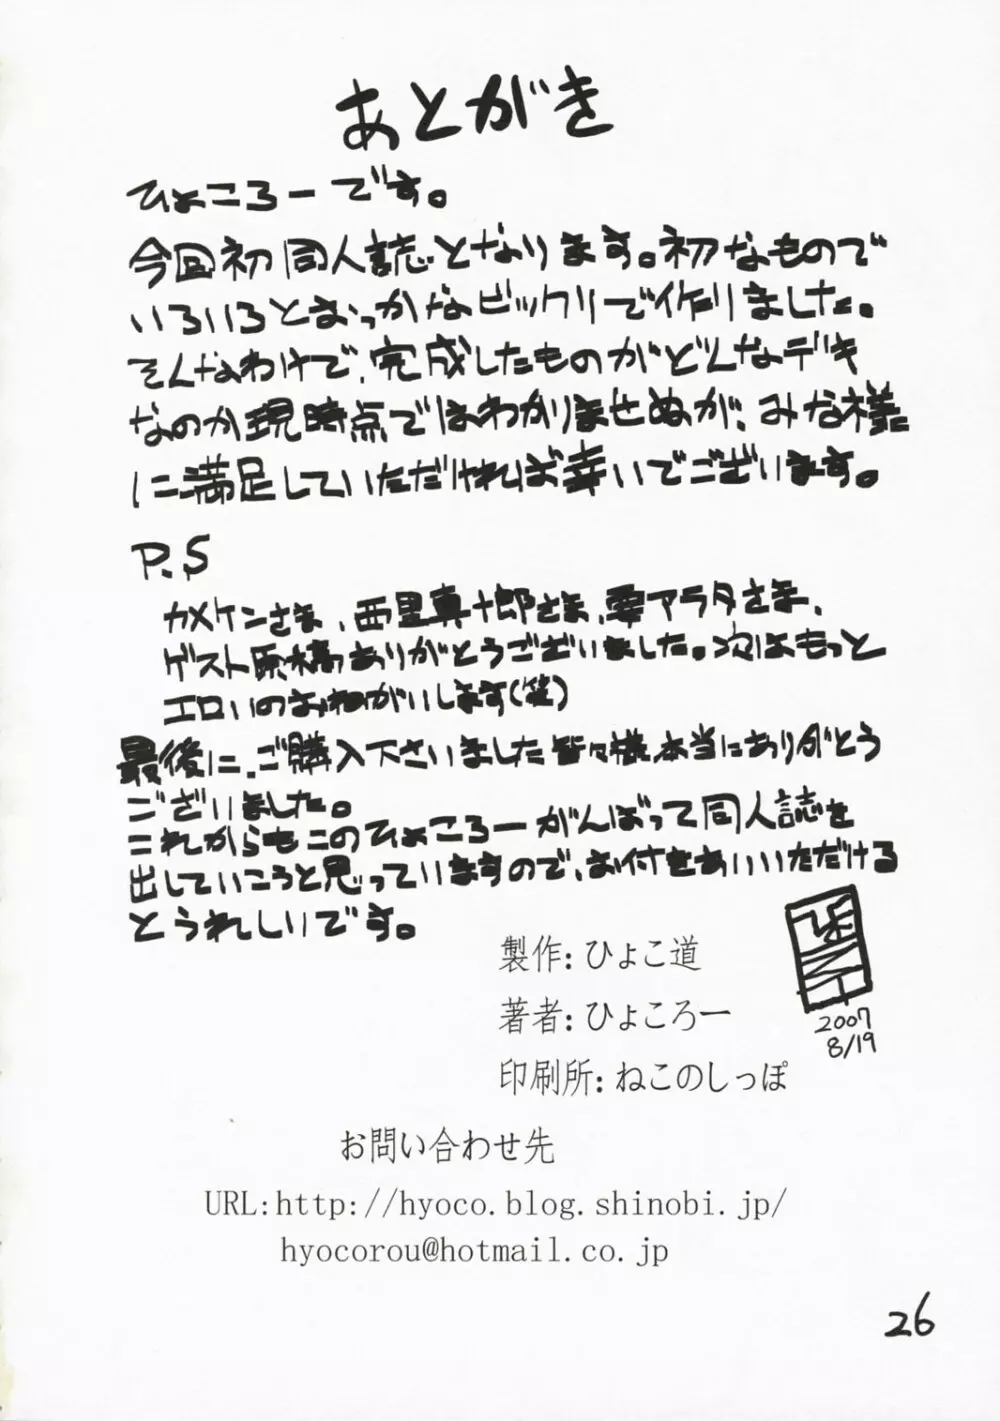 あとがき
ひょころーです。
今回初同人誌となります。初なもので
いろいろとおっかなビックリで作りました。
そんなわけで、完成したものがどんなデキ
なのか現時点ではわかりませぬが、みな様
に満足していただければ幸いでございます。
P.S
カメケンさま、西里真十郎さま、雫アラタさま、
ゲスト原稿ありがとうございました。次はもっと
エロいのおねがいします(笑)
最後に、ご購入下さいました皆々様本当にありがとう
ございました。
これからもこのひょころーがんばって同人誌を
出していこうと思っていますので、お付きあいいただける
とうれしいです。
製作:ひょこ道
著者:ひょころー
印刷所:ねこのしっぽ
2007
8/19
お問い合わせ先
URL:http://hyoco.blog.shinobi.jp/
hyocorou@hotmail.co.jp
26